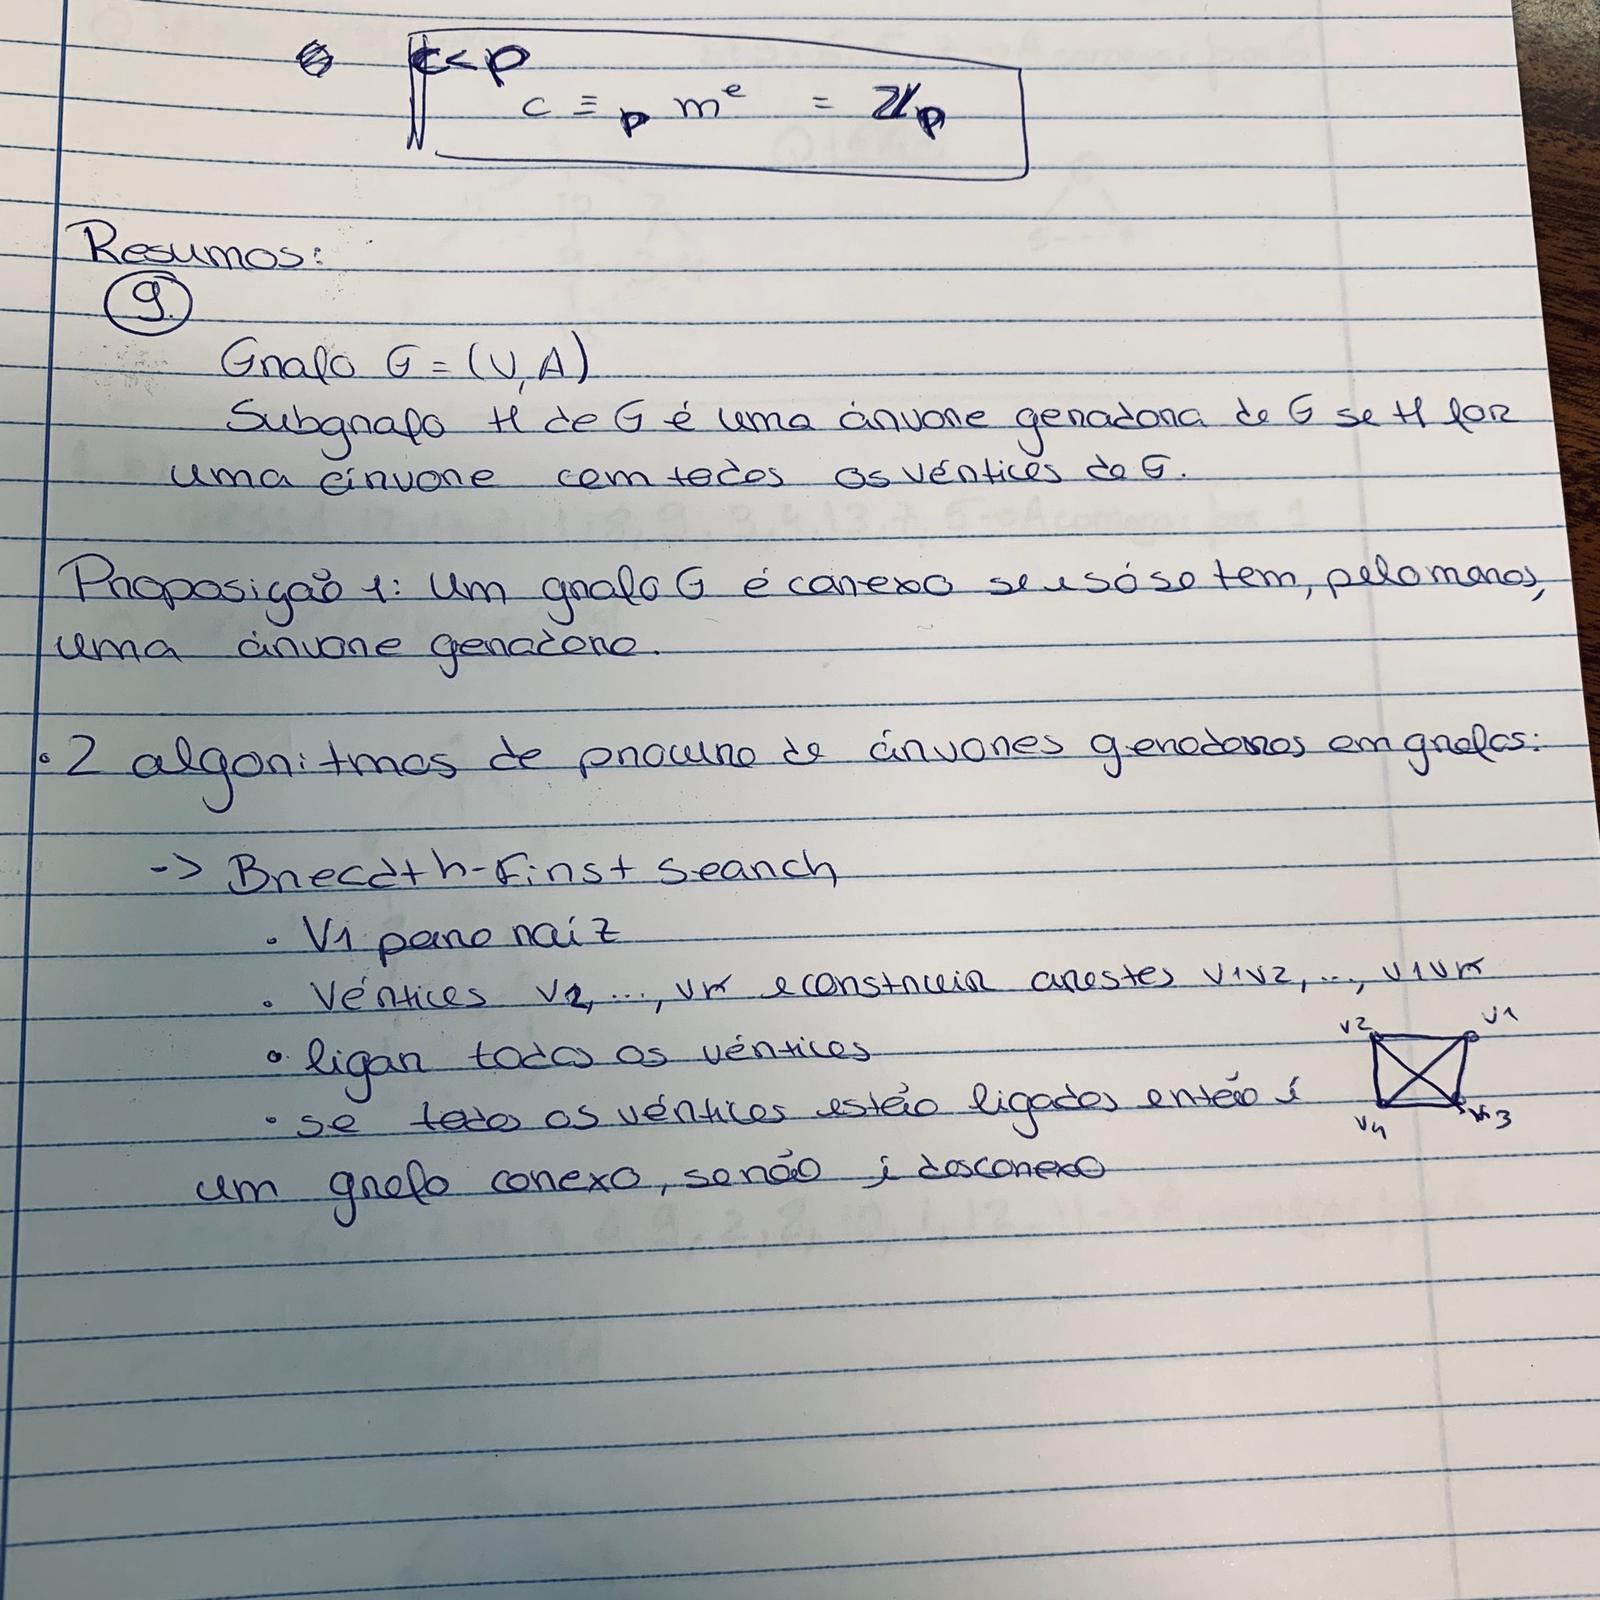 c < p
c ≡p mᵉ = ℤp
Resumos:
9.
Grafo G = (V, A)
Subgrafo H de G é uma árvore geradora de G se H for
uma árvore com todos os vértices de G.
Proposição 1: Um grafo G é conexo se e só se tem, pelo menos,
uma árvore geradora.
• 2 algoritmos de procura de árvores geradoras em grafos:
-> Breadth-First Search
• V1 para raiz
• Vértices v2, ..., vk e construir arestas v1v2, ..., v1vk
• ligar todos os vértices
v2 v1
• se todos os vértices estão ligados então é
v4 v3
um grafo conexo, se não é desconexo